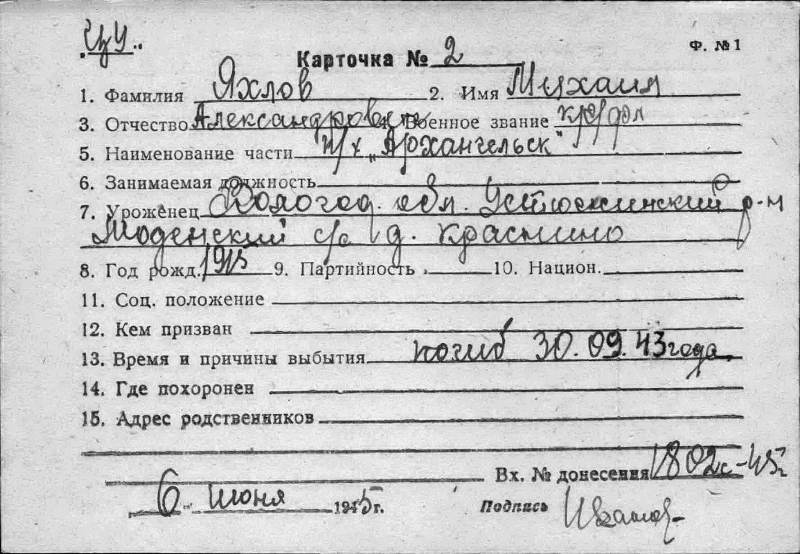 Карточка № 2 Ф. №1
1. Фамилия Яхлов 2. Имя Михаил
3. Отчество Александрович Военное звание кр/фл
5. Наименование части п/х "Архангельск"
6. Занимаемая должность
7. Уроженец Вологод. обл. Устюженский р-н
Моденский с/с д. Краснино
8. Год рожд. 1915 9. Партийность 10. Национ.
11. Соц. положение
12. Кем призван
13. Время и причины выбытия погиб 30.09.43 года.
14. Где похоронен
15. Адрес родственников
Вх. № донесения 1802с-45г
6 июня 1945г. Подпись